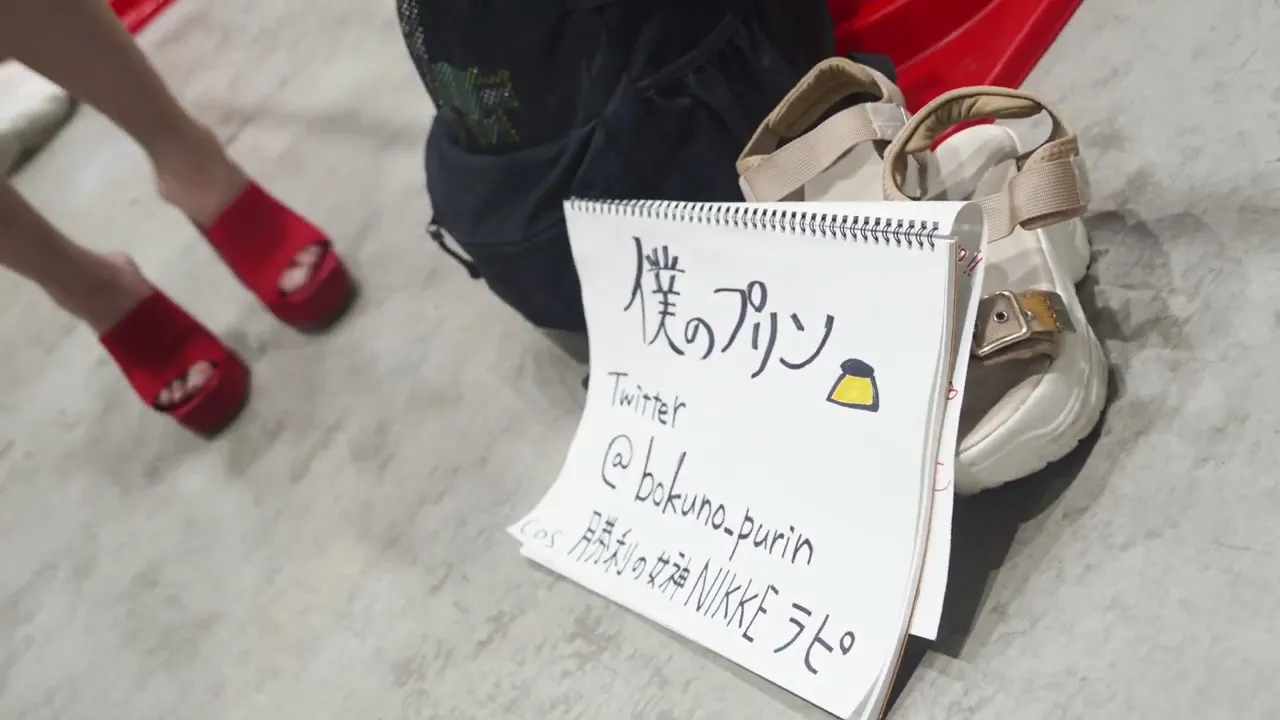 僕のプリン
Twitter
@bokuno_purin
cos 勝利の女神NIKKE ラピ